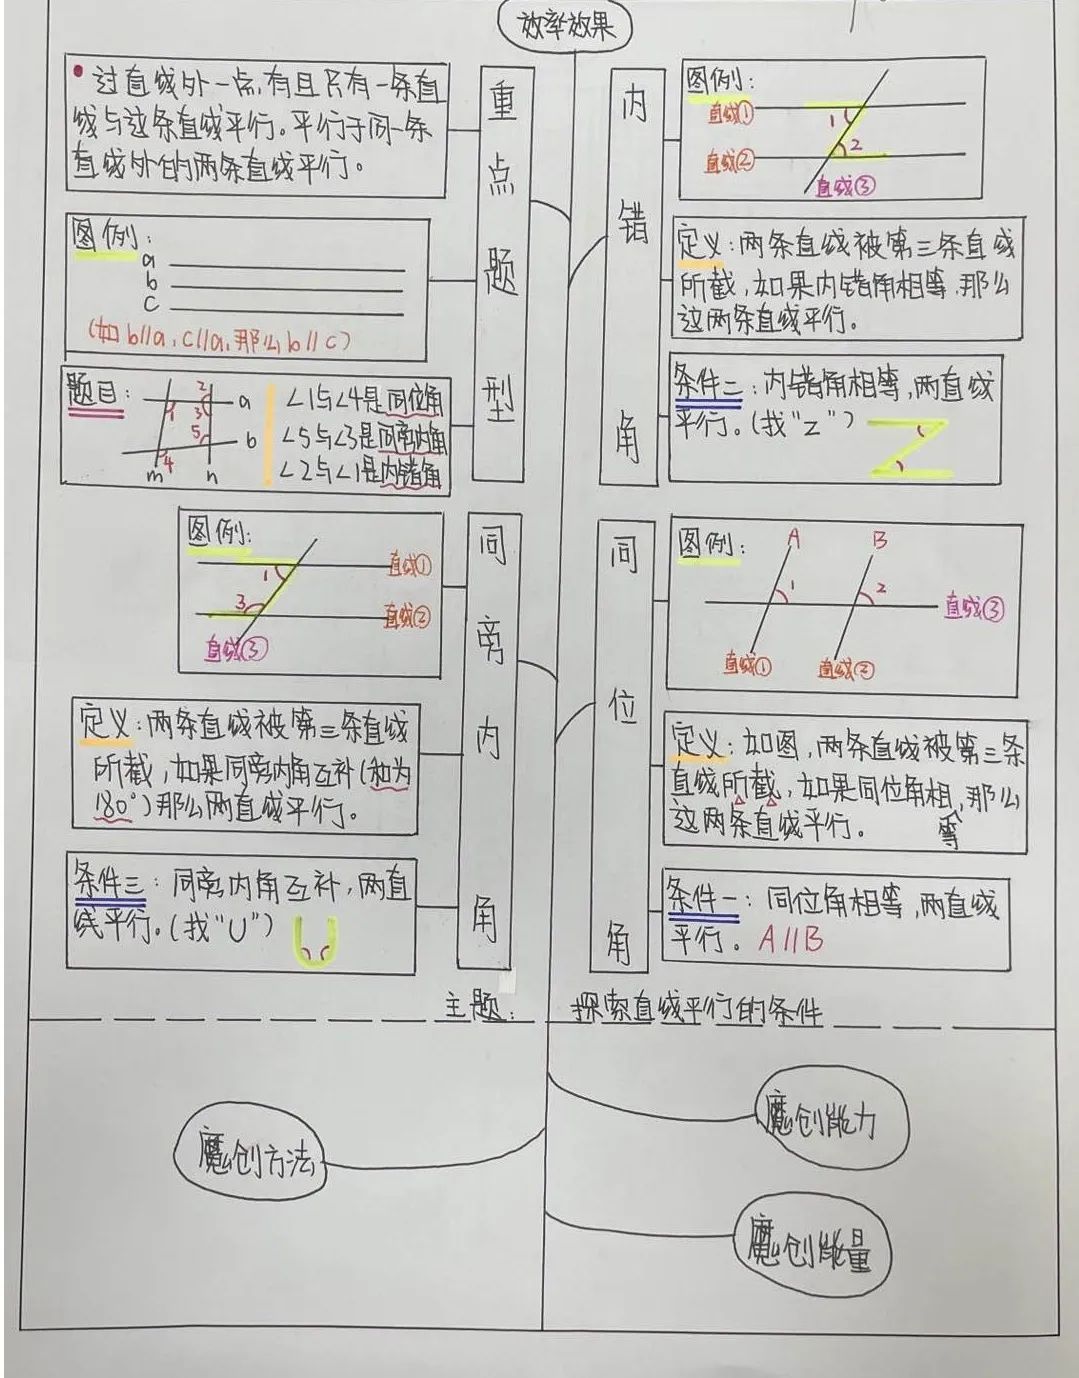 效率效果
过直线外一点,有且只有一条直
线与这条直线平行。平行于同一条
直线外的两条直线平行。
图例:
a
b
c
(如b//a,c//a,那么b//c)
题目:
2
1
3
a
5
b
4
m
n
∠1与∠4是同位角
∠5与∠3是同旁内角
∠2与∠1是内错角
重点题型
内错角
图例:
直线①
1
直线②
2
直线③
定义:两条直线被第三条直线
所截,如果内错角相等,那么
这两条直线平行。
条件二:内错角相等,两直线
平行。(找"Z")
同旁内角
图例:
直线①
1
3
直线②
直线③
定义:两条直线被第三条直线
所截,如果同旁内角互补(和为
180°)那么两直线平行。
条件三:同旁内角互补,两直
线平行。(找"U")
同位角
图例:
A
B
1
2
直线③
直线①
直线②
定义:如图,两条直线被第三条
直线所截,如果同位角相等,那么
这两条直线平行。
条件一:同位角相等,两直线
平行。A//B
主题:探索直线平行的条件
魔创方法
魔创能力
魔创能量